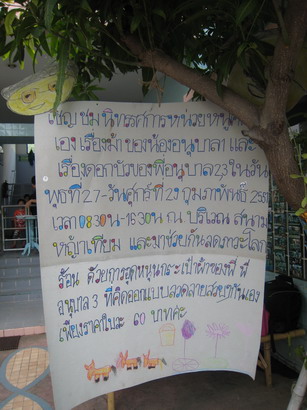 เชิญชมนิทรรศการหน่วยหนูทำ
เองเรื่องม้า ของน้องอนุบาล1 และ
เรื่องดอกบัวของพี่อนุบาล 2,3 ในวัน
พุธที่ 27-วันศุกร์ที่ 29 กุมภาพันธ์
เวลา 08.30น-16.30น ณ บริเวณ สนาม
หญ้าเทียม และมาช่วยกันลดภาวะโลก
ร้อน ด้วยการอุดหนุนกระเป๋าผ้าของพี่ พี่
อนุบาล 3 ที่คิดออกแบบลวดลายสวยๆกันเอง
เพียงราคาใบละ 60 บาทค่ะ